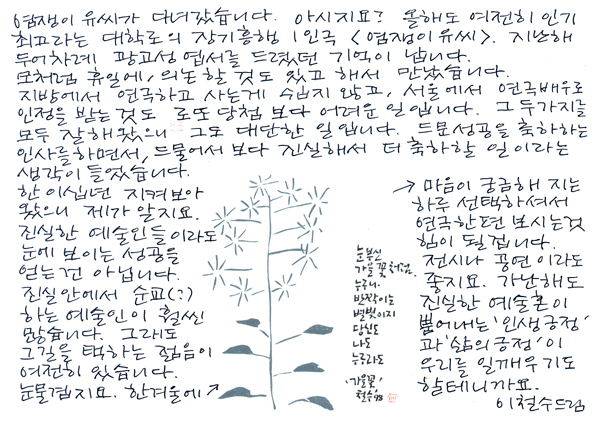 염쟁이 유씨가 다녀갔습니다. 아시지요? 올해도 여전히 인기
최고라는 대학로의 장기흥행 1인극 <염쟁이 유씨>. 지난해
두어차례 광고성 엽서를 드렸던 기억이 납니다.
모처럼 휴일에, 의논할 것도 있고 해서 만났습니다.
지방에서 연극하고 사는게 쉽지 않고, 서울에서 연극배우로
인정을 받는것도 로또 당첨 보다 어려운 일입니다. 그 두가지를
모두 잘 해왔으니 그도 대단한 일입니다. 드문성공을 축하하는
인사를 하면서, 드물어서 보다 진실해서 더 축하할 일이라는
생각이 들었습니다.
한 이십년 지켜보아
왔으니 제가 알지요.
진실한 예술인들이라도
눈에 보이는 성공을
얻는건 아닙니다.
진실안에서 순교(?)
하는 예술인이 훨씬
많습니다. 그래도
그길을 택하는 젊음이
여전히 있습니다.
눈물겹지요. 한겨울에 ↗
→ 마음이 궁금해 지는
하루 선택하셔서
연극한편 보시는것
힘이 될겁니다.
전시나 공연 이라도
좋지요. 가난해도
진실한 예술혼이
뿜어내는 '인생긍정'
과 '삶의긍정' 이
우리를 일깨우기도
할테니까요.
이철수드림
눈부신
가을 꽃처럼.
누구나.
반짝이는
별빛이지
당신도
나도
누구라도
'가을꽃'
철수'98